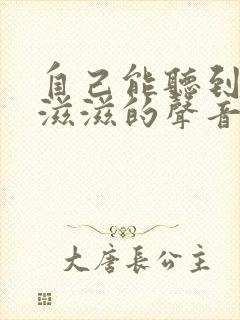 自己能聽到
滋滋的聲音
大唐長公主